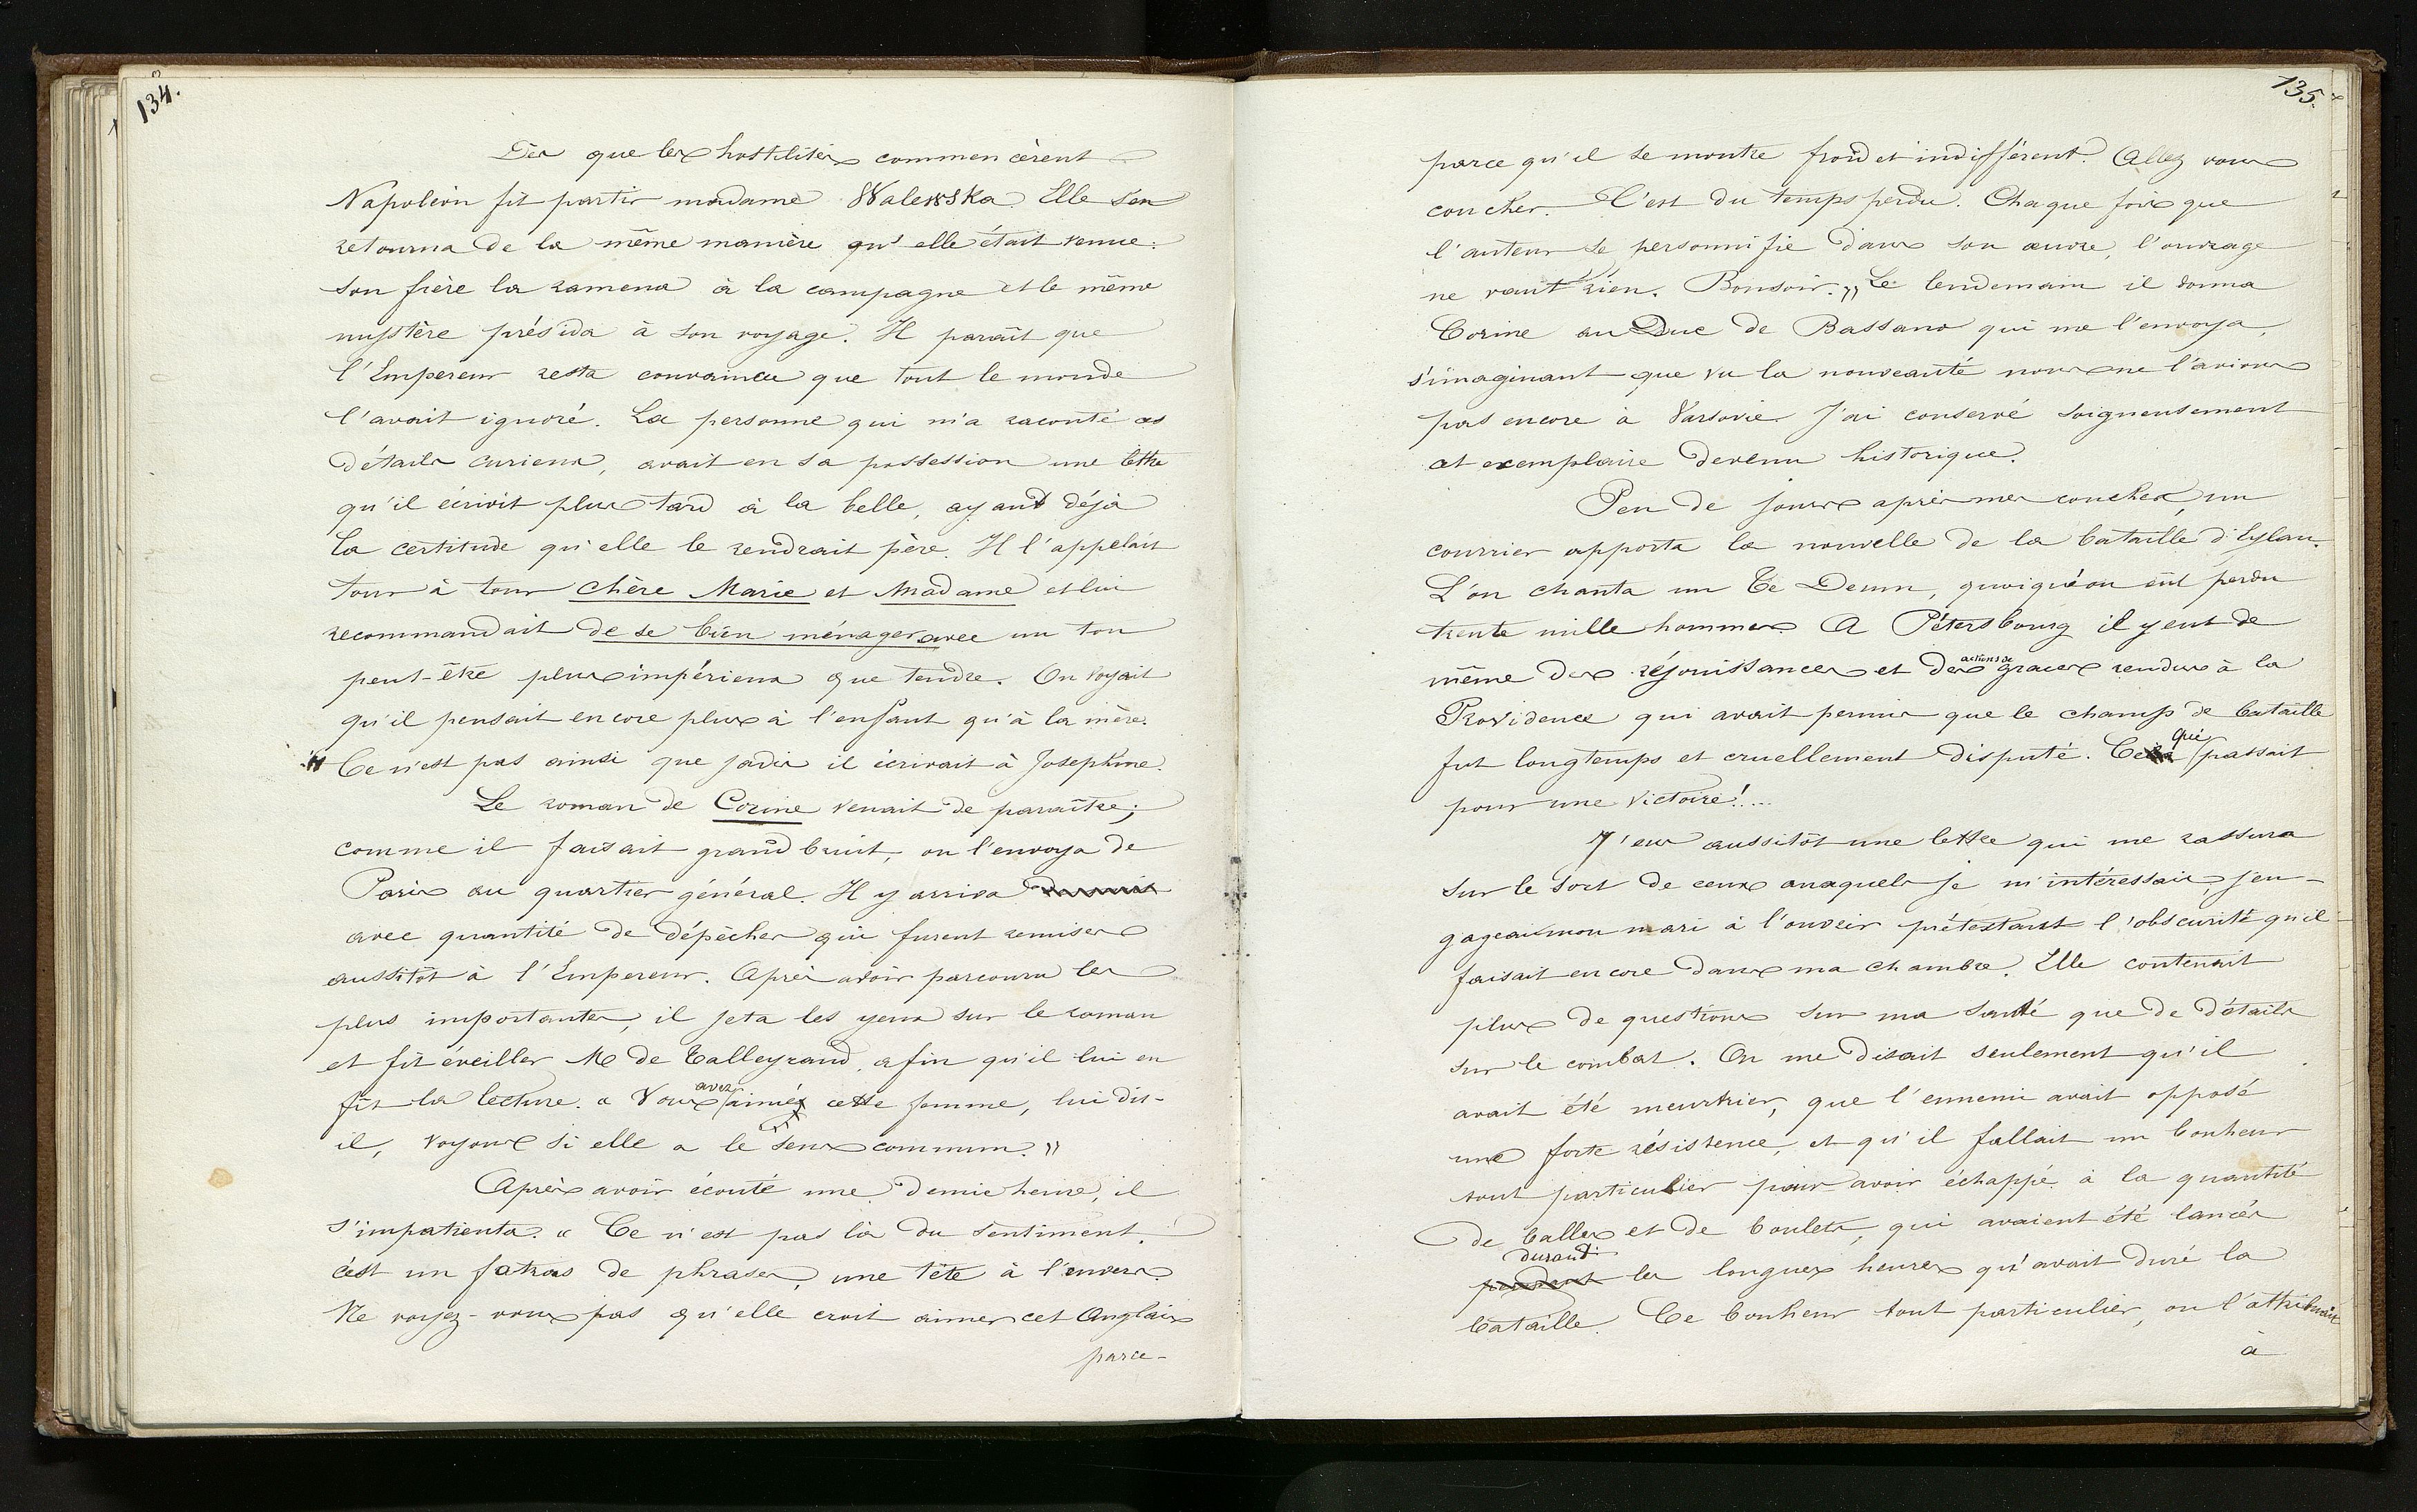 134.
Dès que les hostilités commencèrent
Napoléon fit partir madame Walewska. Elle s'en
retourna de la même manière qu'elle était venue:
son frère la ramena à la campagne et le même
mystère présida à son voyage. Il paraît que
l'Empereur resta convaincu que tout le monde
l'avait ignoré. La personne qui m'a raconté ces
détails curieux, avait en sa possession une lettre
qu'il écrivit plus tard à la belle, ayant déjà
la certitude qu'elle le rendrait père. Il l'appelait
tour à tour chère Marie et Madame et lui
recommandait de se bien ménager avec un ton
peut-être plus impérieux que tendre. On voyait
qu'il pensait encore plus à l'enfant qu'à la mère.
Ce n'est pas ainsi que jadis il écrivait à Josephine.
Le roman de Corine venait de paraître;
comme il faisait grand bruit, on l'envoya de
Paris au quartier général. Il y arriva
avec quantité de dépêches qui furent remises
aussitôt à l'Empereur. Après avoir parcouru les
plus importantes, il jeta les yeux sur le roman
et fit éveiller M de Talleyrand, afin qu'il lui en
fit la lecture. « Vous avez aimé cette femme, lui dit-
il, voyons si elle a le sens commun. »
Après avoir écouté une demie heure, il
s'impatienta. « Ce n'est pas là du sentiment,
c'est un fatras de phrases, une tête à l'envers.
Ne voyez-vous pas qu'elle croit aimer cet Anglais
parce-
135.
parce qu'il se montre froid et indifférent. Allez vous
coucher. C'est du temps perdu. Chaque fois que
l'auteur se personnifie dans son œuvre, l'ouvrage
ne vaut rien. Bonsoir. » Le lendemain il donna
Corine au Duc de Bassano qui me l'envoya,
s'imaginant que vu la nouveauté nous ne l'avions
pas encore à Varsovie. J'ai conservé soigneusement
cet exemplaire devenu historique.
Peu de jours après mes couches, un
courrier apporta la nouvelle de la bataille d'Eylau.
L'on chanta un Te Deum, quoiqu'on eût perdu
trente mille hommes. A Pétersbourg il y eut de
même des réjouissances et des actions de graces rendus à la
Providence qui avait permis que le champ de bataille
fut longtemps et cruellement disputé. Ce qui passait
pour une victoire!...
J'eus aussitôt une lettre qui me rassura
sur le sort de ceux auxquels je m'intéressais, j'en-
gageai mon mari à l'ouvrir prétextant l'obscurité qu'il
faisait encore dans ma chambre. Elle contenait
plus de questions sur ma santé que de détails
sur le combat. On me disait seulement qu'il
avait été meurtrier, que l'ennemi avait opposé
une forte résistence, et qu'il fallait un bonheur
tout particulier pour avoir échappé à la quantité
de balles et de boulets, qui avaient été lancés
durant
pendant les longues heures qu'avait duré la
bataille. Ce bonheur tout particulier, on l'attribuait
à